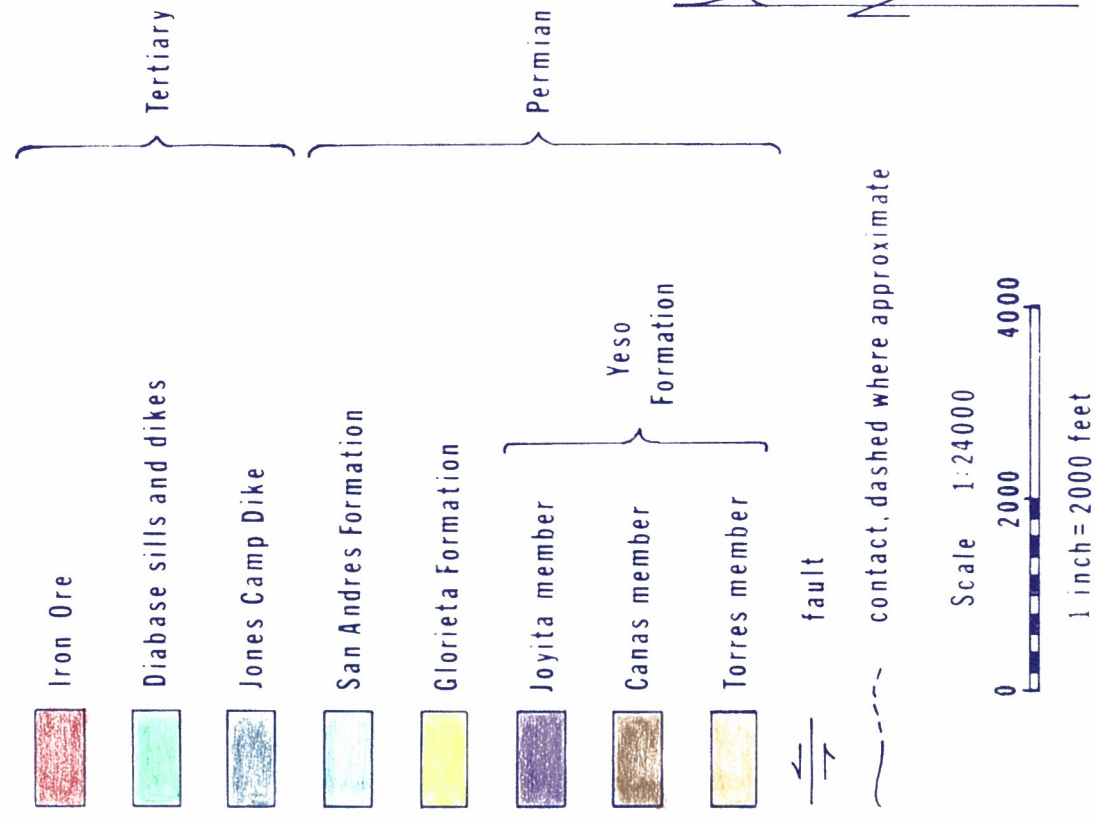 Iron Ore
Diabase sills and dikes
Jones Camp Dike
Tertiary
San Andres Formation
Glorieta Formation
Joyita member
Canas member
Torres member
Yeso
Formation
Permian
fault
contact, dashed where approximate
Scale 1:24000
0 2000 4000
1 inch = 2000 feet